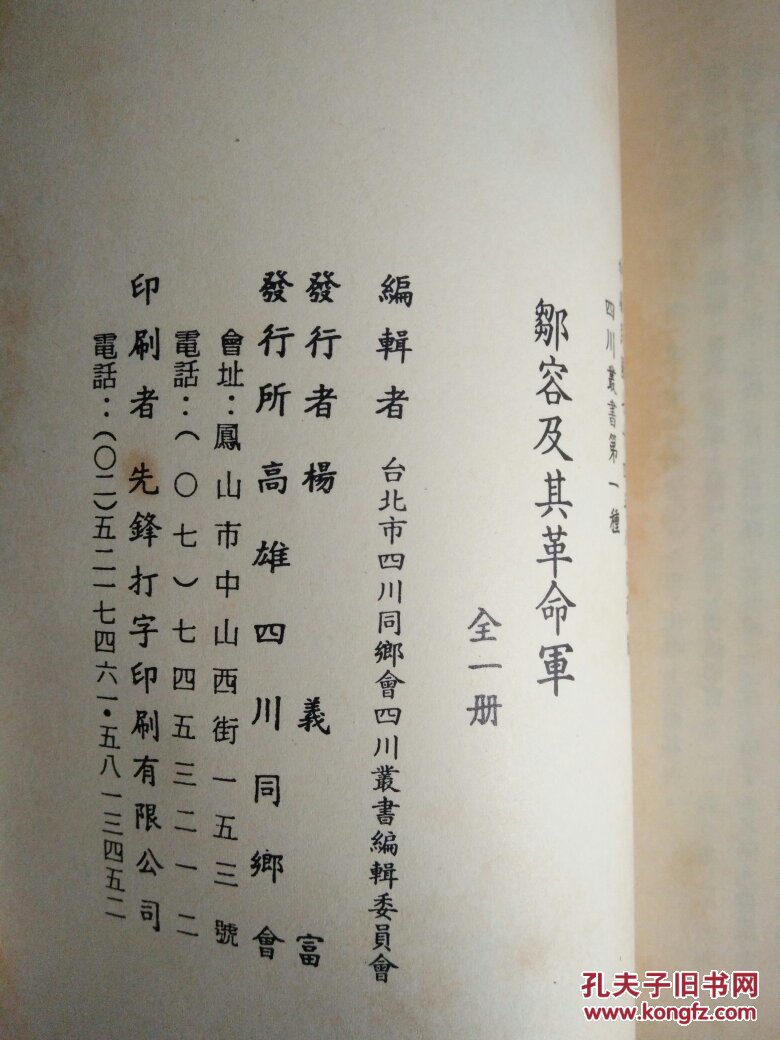 四川叢書第一種
鄒容及其革命軍
全一册
編輯者 台北市四川同鄉會四川叢書編輯委員會
發行者楊義富
發行所高雄四川同鄉會
會址：鳳山市中山西街一五三號
電話：（〇七）七四五三二一二
印刷者 先鋒打字印刷有限公司
電話：（〇二）五二一七四六一・五八一三四五二
孔夫子旧书网
www.kongfz.com